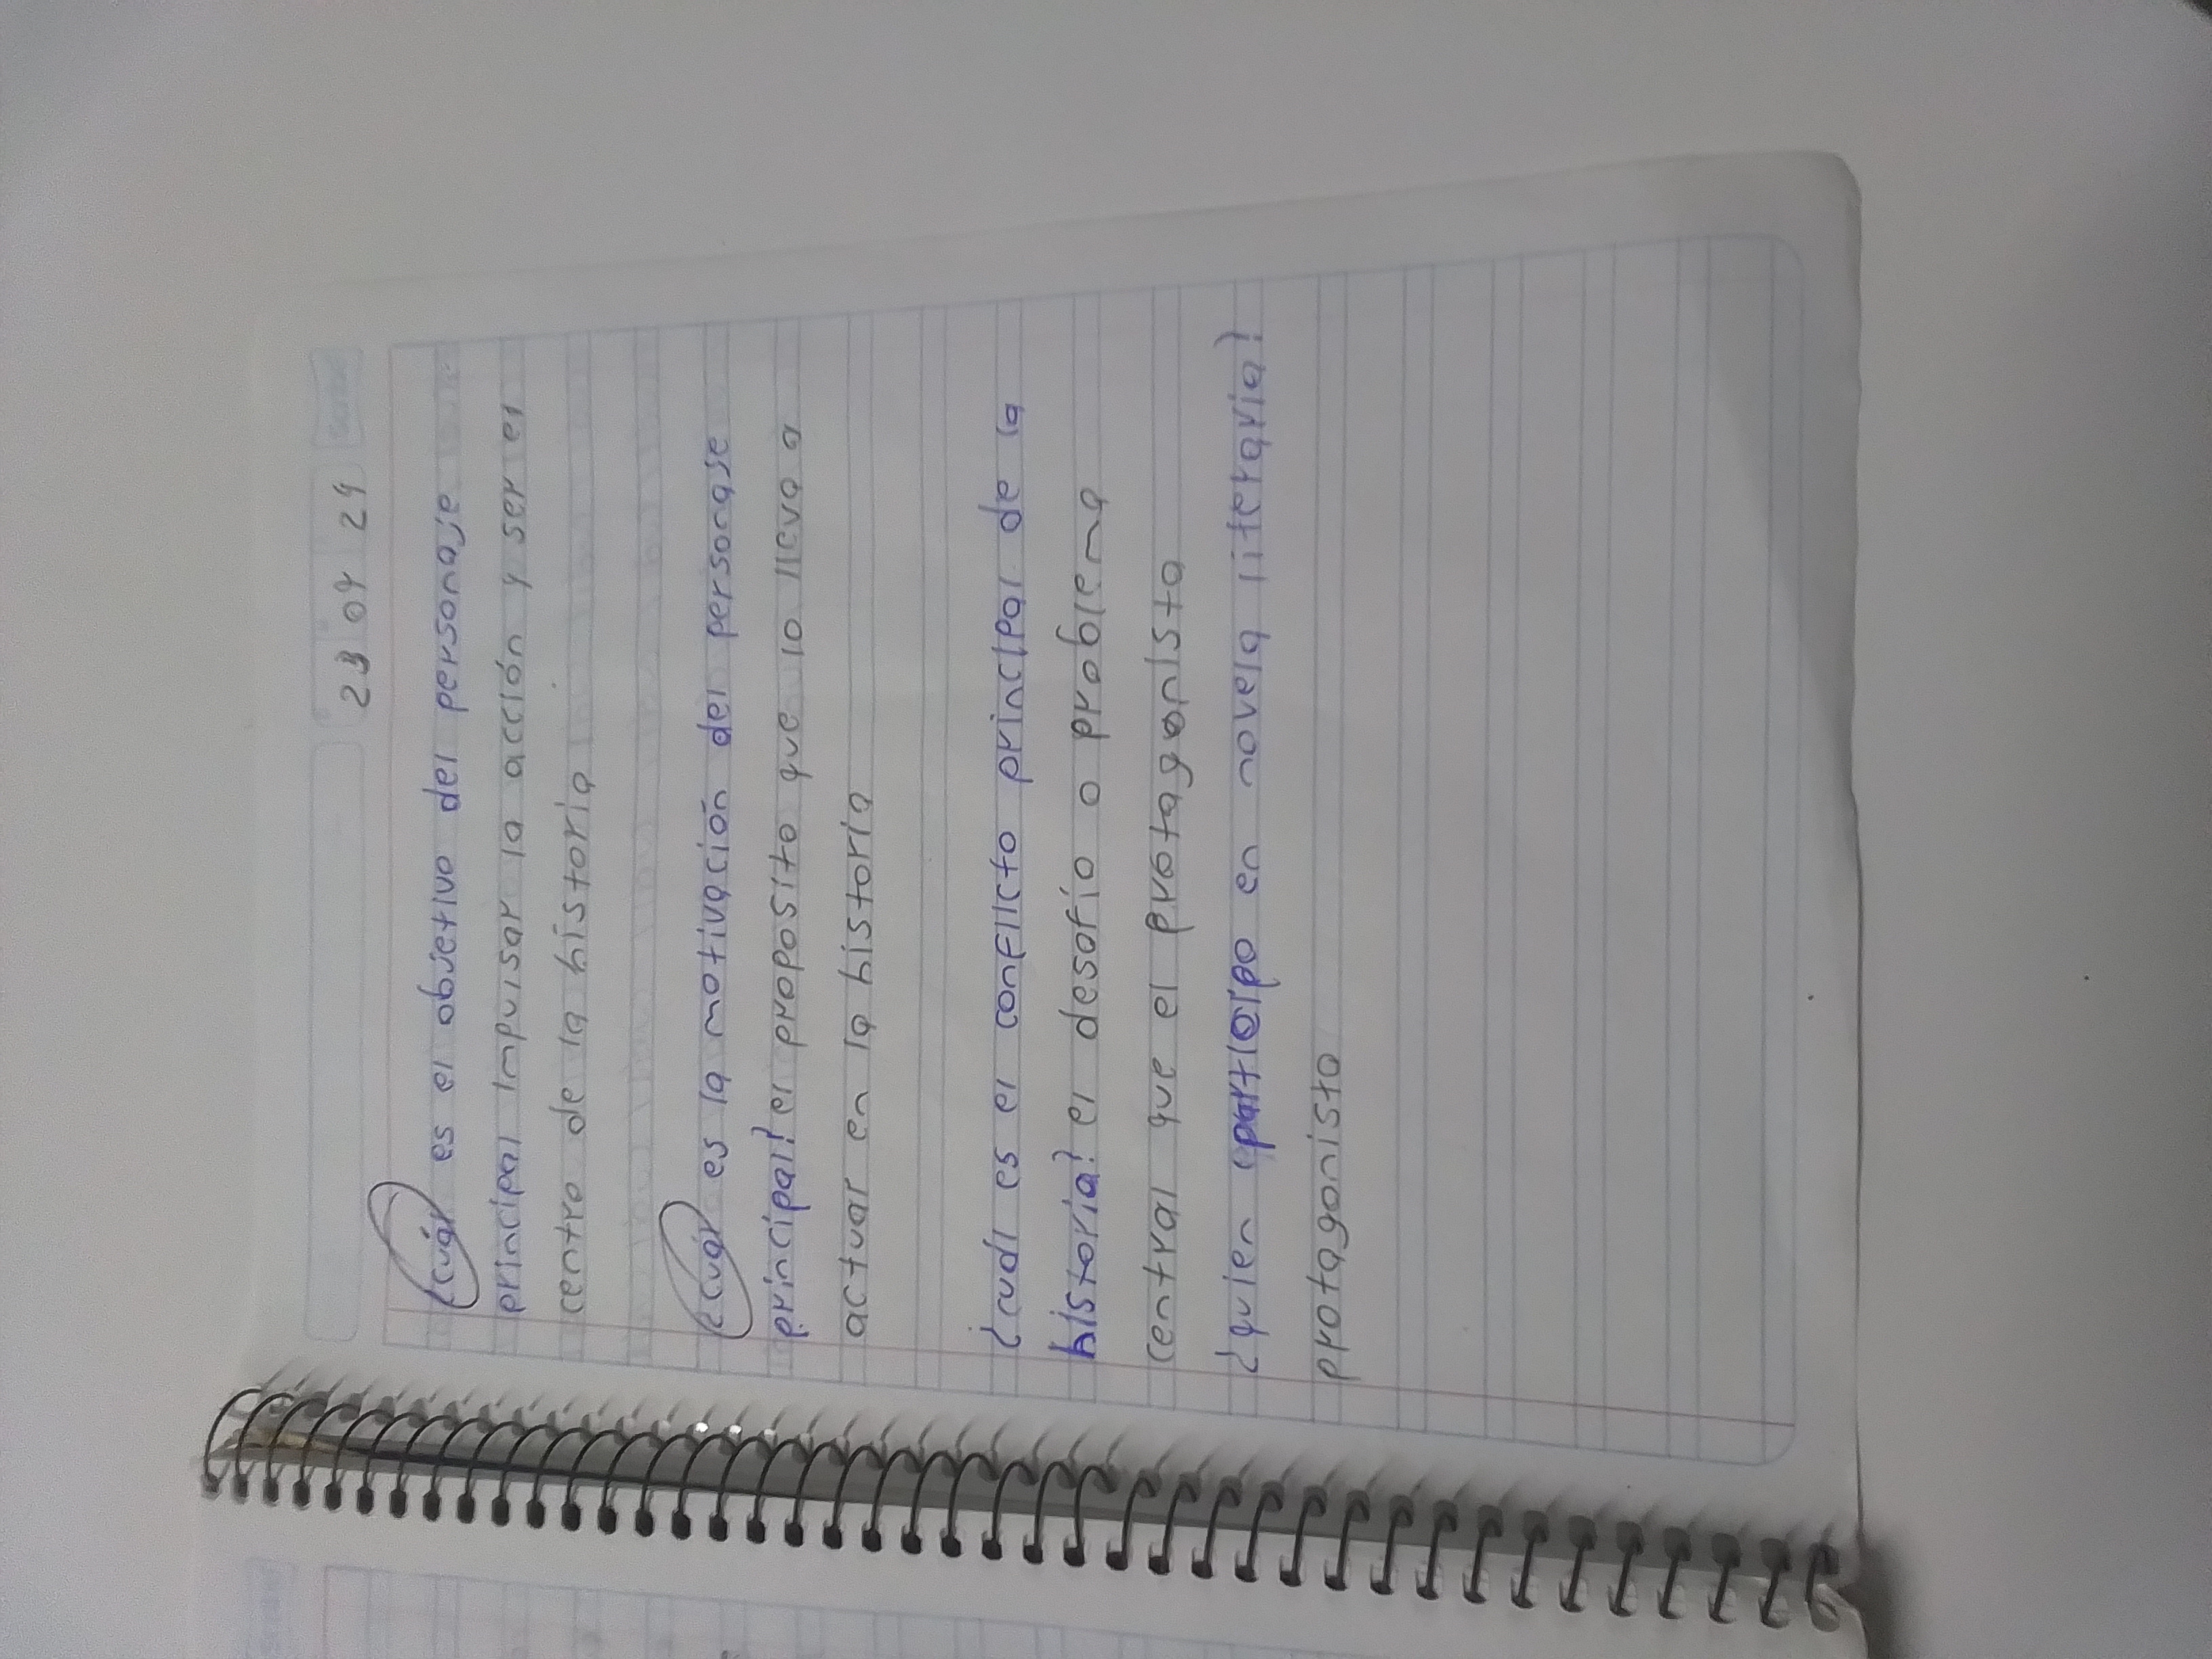 23 04 24
¿cuál es el objetivo del personaje
principal impulsar la acción y ser el
centro de la historia
¿cuál es la motivación del personase
principal? el proposito que lo lleva a
actuar en la historia
¿cudl es el conflicto principal de la
historia? el desafío o problema
central que el protagonista
¿quien participo en novela literaria?
protagonisto